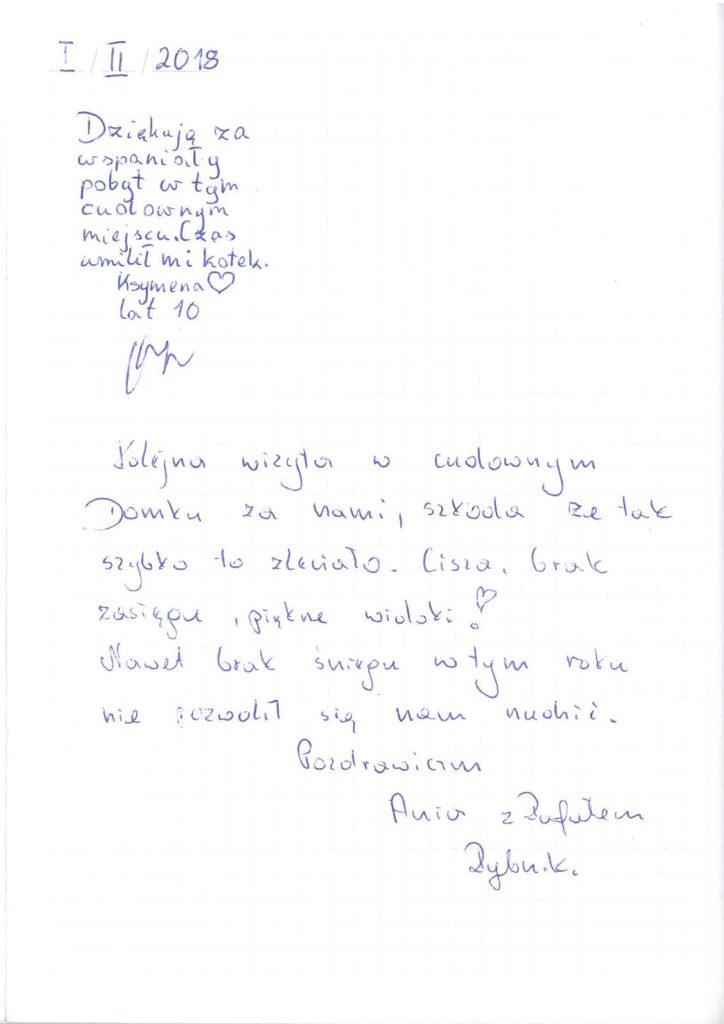 I / II / 2018
Dziękuję za
wspaniały
pobyt w tym
cudownym
miejscu. Czas
umilił mi kotek.
Ksymena ♡
lat 10
Kolejna wizyta w cudownym
Domku za nami, szkoda że tak
szybko to zleciało. Cisza, brak
zasięgu, piękne widoki!
Nawet brak śniegu w tym roku
nie pozwolił się nam nudzić.
Pozdrawiam
Ania z Rafałem
Rybnik.